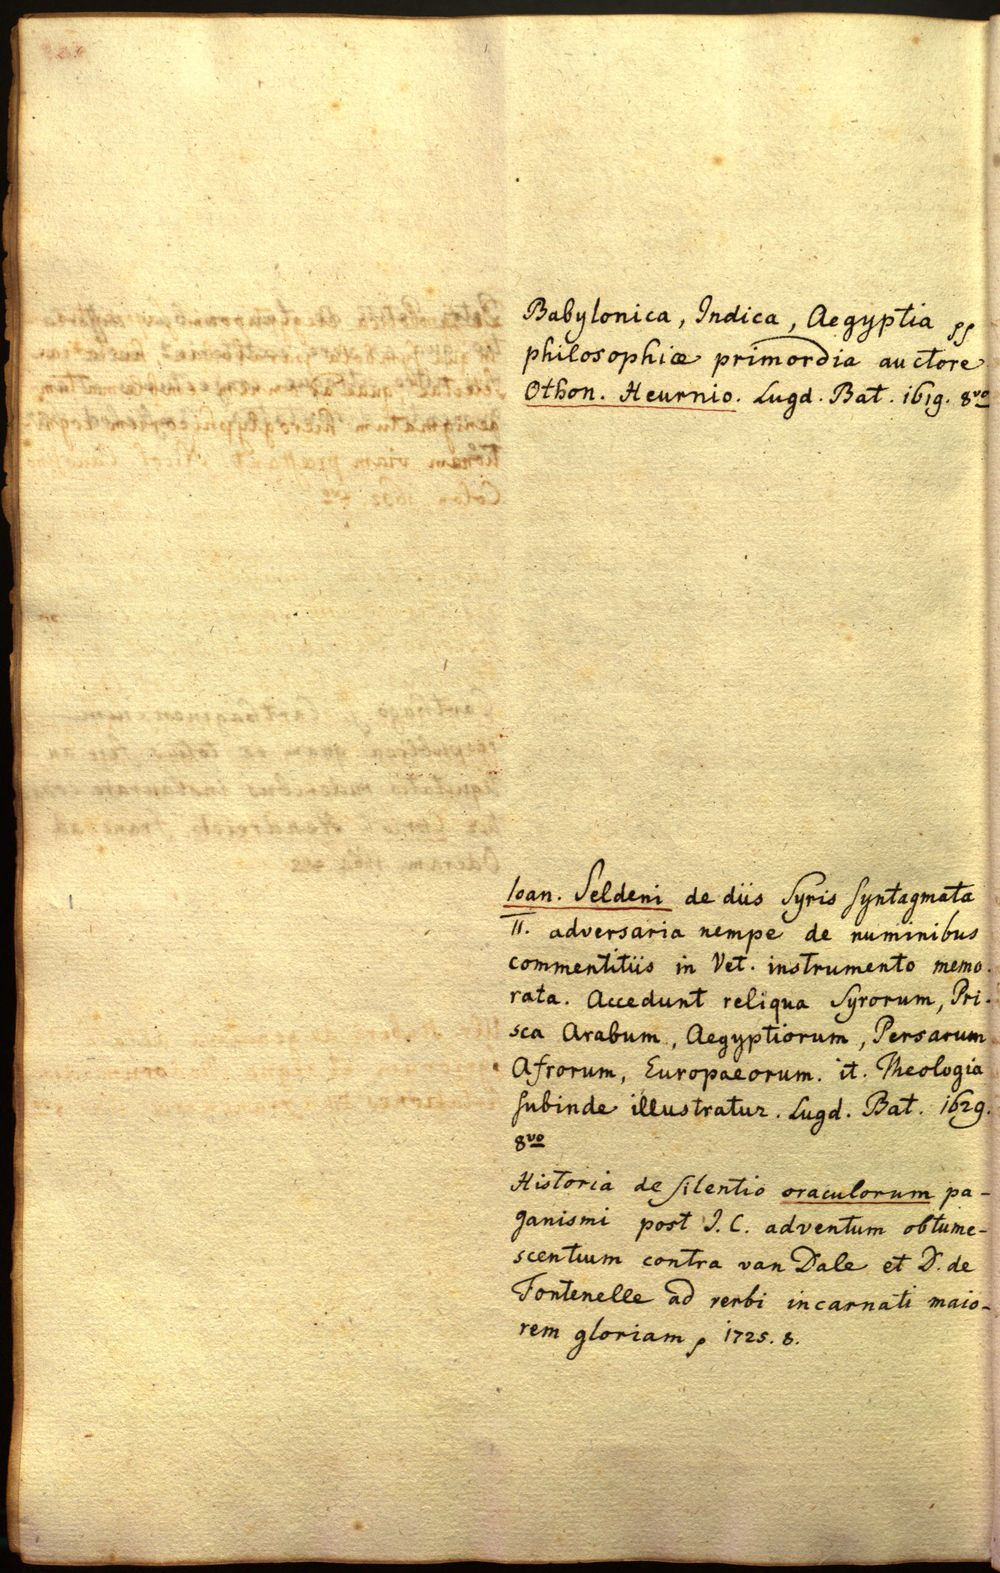 Babylonica, Indica, Aegyptia
philosophiæ primordia auctore
Othon. Heurnio. Lugd. Bat. 1619. 8vo
Ioan. Seldeni de diis Syris syntagmata
II. adversaria nempe de numinibus
commentitiis in Vet. instrumento memo-
rata. Accedunt reliqua Syrorum, Pri-
sca Arabum, Aegyptiorum, Persarum
Afrorum, Europaeorum. it. Theologia
subinde illustratur. Lugd. Bat. 1629.
8vo
Historia de silentio oraculorum pa-
ganismi post J. C. adventum obtume-
scentium contra van Dale et D. de
Fontenelle ad verbi incarnati maio-
rem gloriam 1725. 8.